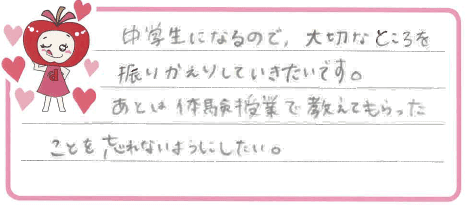 中学生になるので、大切なところを
振りかえりしていきたいです。
あとは体験授業で教えてもらった
ことを忘れないようにしたい。